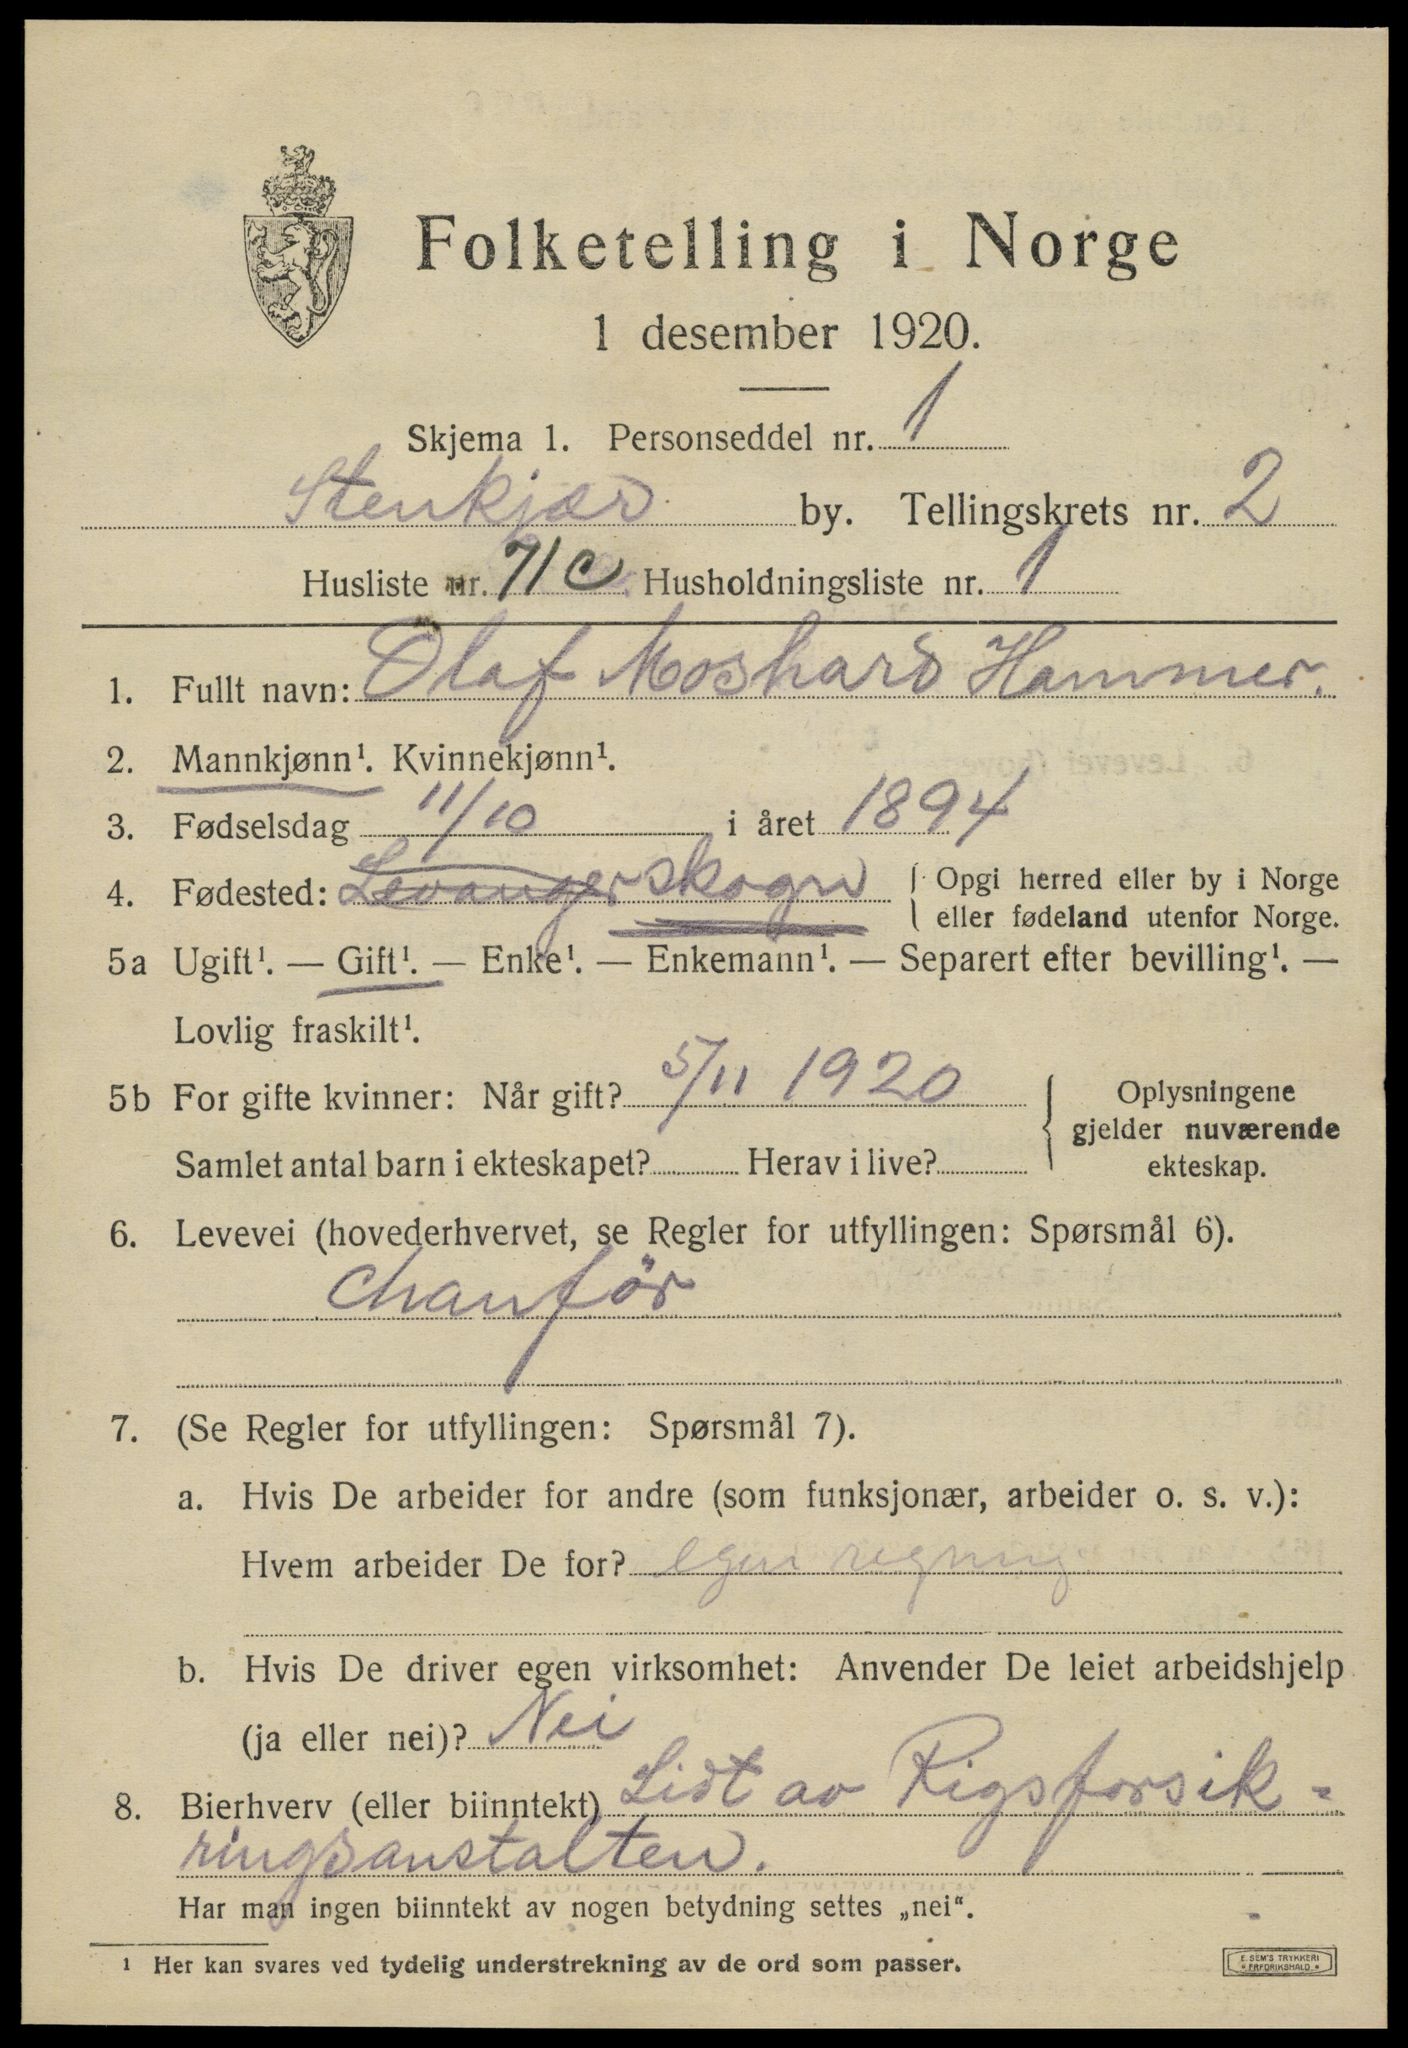 Folketelling i Norge
1 desember 1920.
Skjema 1. Personseddel nr. 1
Stenkjær by. Tellingskrets nr. 2
Husliste nr. 71c Husholdningsliste nr. 1
1. Fullt navn: Olaf Moshard Hammer.
2. Mannkjønn¹. Kvinnekjønn¹.
3. Fødselsdag 11/10 i året 1894
4. Fødested: Levanger skogn { Opgi herred eller by i Norge
eller fødeland utenfor Norge.
5a Ugift¹. — Gift¹. — Enke¹. — Enkemann¹. — Separert efter bevilling¹. —
Lovlig fraskilt¹.
5b For gifte kvinner: Når gift? 5/11 1920
Samlet antal barn i ekteskapet? Herav i live?
Oplysningene
gjelder nuværende
ekteskap.
6. Levevei (hovederhvervet, se Regler for utfyllingen: Spørsmål 6).
Chauffør
7. (Se Regler for utfyllingen: Spørsmål 7).
a. Hvis De arbeider for andre (som funksjonær, arbeider o. s. v.):
Hvem arbeider De for? egen regning
b. Hvis De driver egen virksomhet: Anvender De leiet arbeidshjelp
(ja eller nei)? Nei
8. Bierhverv (eller biinntekt) Lidt av Rigsforsik-
ringsanstalten.
Har man ingen biinntekt av nogen betydning settes „nei“.
¹ Her kan svares ved tydelig understrekning av de ord som passer.
E. SEM'S TRYKKERI
FREDRIKSHALD.